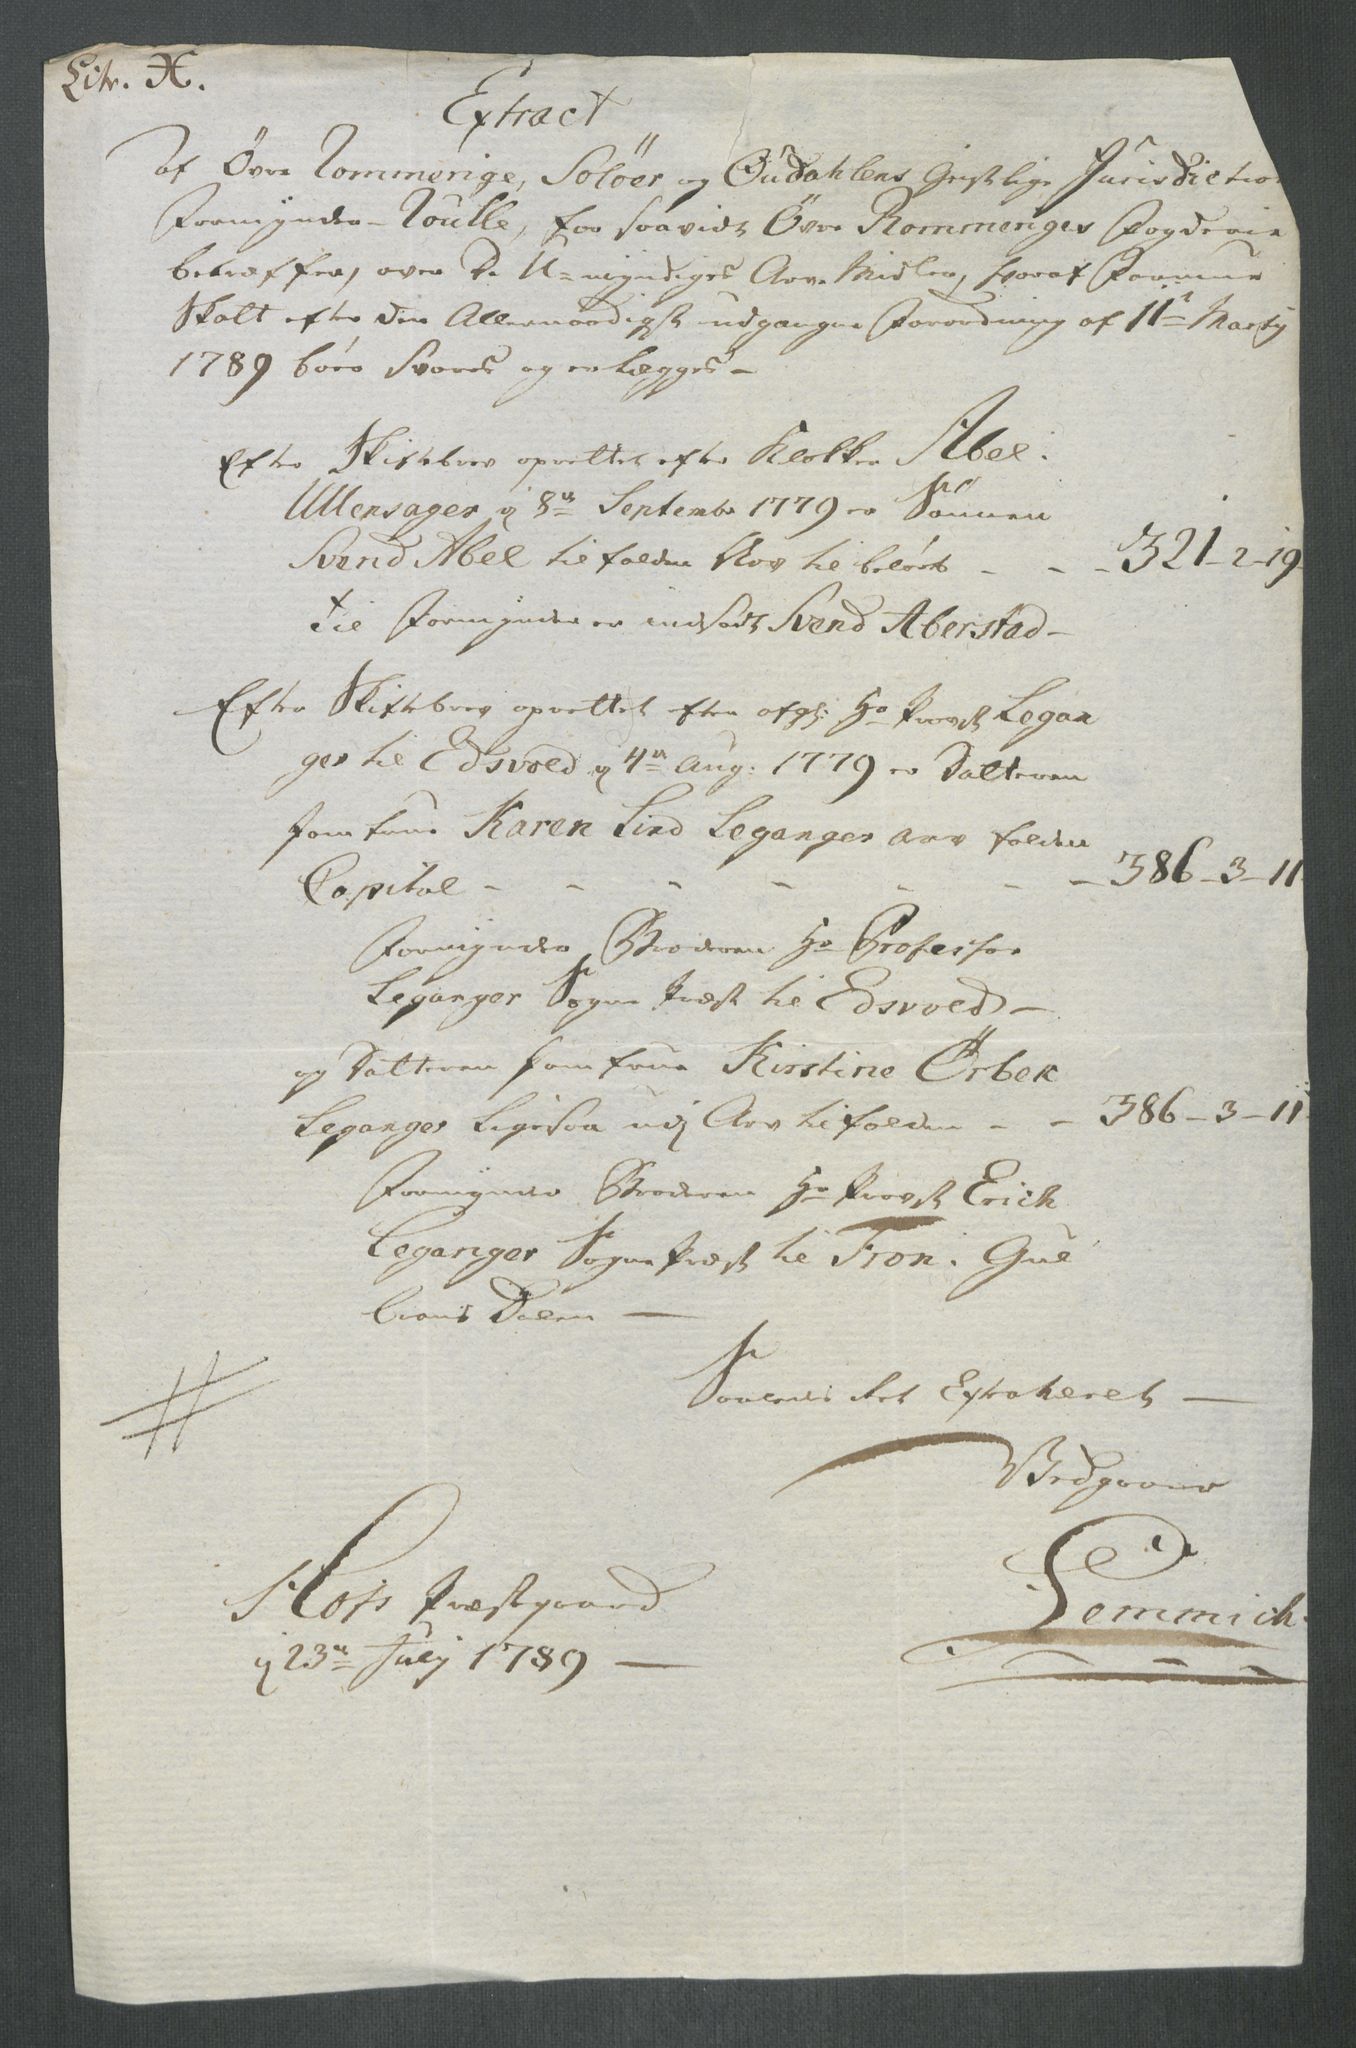 Litr. H.
Extract
af Övre Rommerige, Solöer og Oudahlens Geistlige Jurisdiction
Formynder-Roulle, for saavidt Övre Rommeriges Fogderie
betræffer, over de U-myndiges Arve Midler, hvoraf Formue
Skatt efter den Allernaadigst udgangne Forordning af 11te Martij
1789 bør svares og erlægges -
Efter Skiftebrev oprettet efter Klokker Abel i
Ullensager d 8de Septembr 1779 er Sönnen
Svend Abel tilfalden Arv til beløb - - - 321 - 2 - 19
til Formynder er indsadt Svend Aberstad -
Efter Skiftebrev oprettet efter afg: Hr Provst Legan
ger til Edsvold d 4de Aug: 1779 er Datteren
Jomfrue Karen Lind Leganger arv falden
Capital - - - - - - - 386 - 3 - 11
Formynder Broderen Hr Professor
Leganger Sogne Præst til Edsvold -
og Datteren Jomfrue Kirstine Örbek
Leganger Ligesaa udj Arv tilfalden - - 386 - 3 - 11
Formynder Broderen Hr Provst Erich
Leganger Sogne Præst til Fron i Gul
brands Dalen -
Saaledes Ret Extraheret -
Lemmich
Hofs Præstegaard
d 23de Julij 1789 -